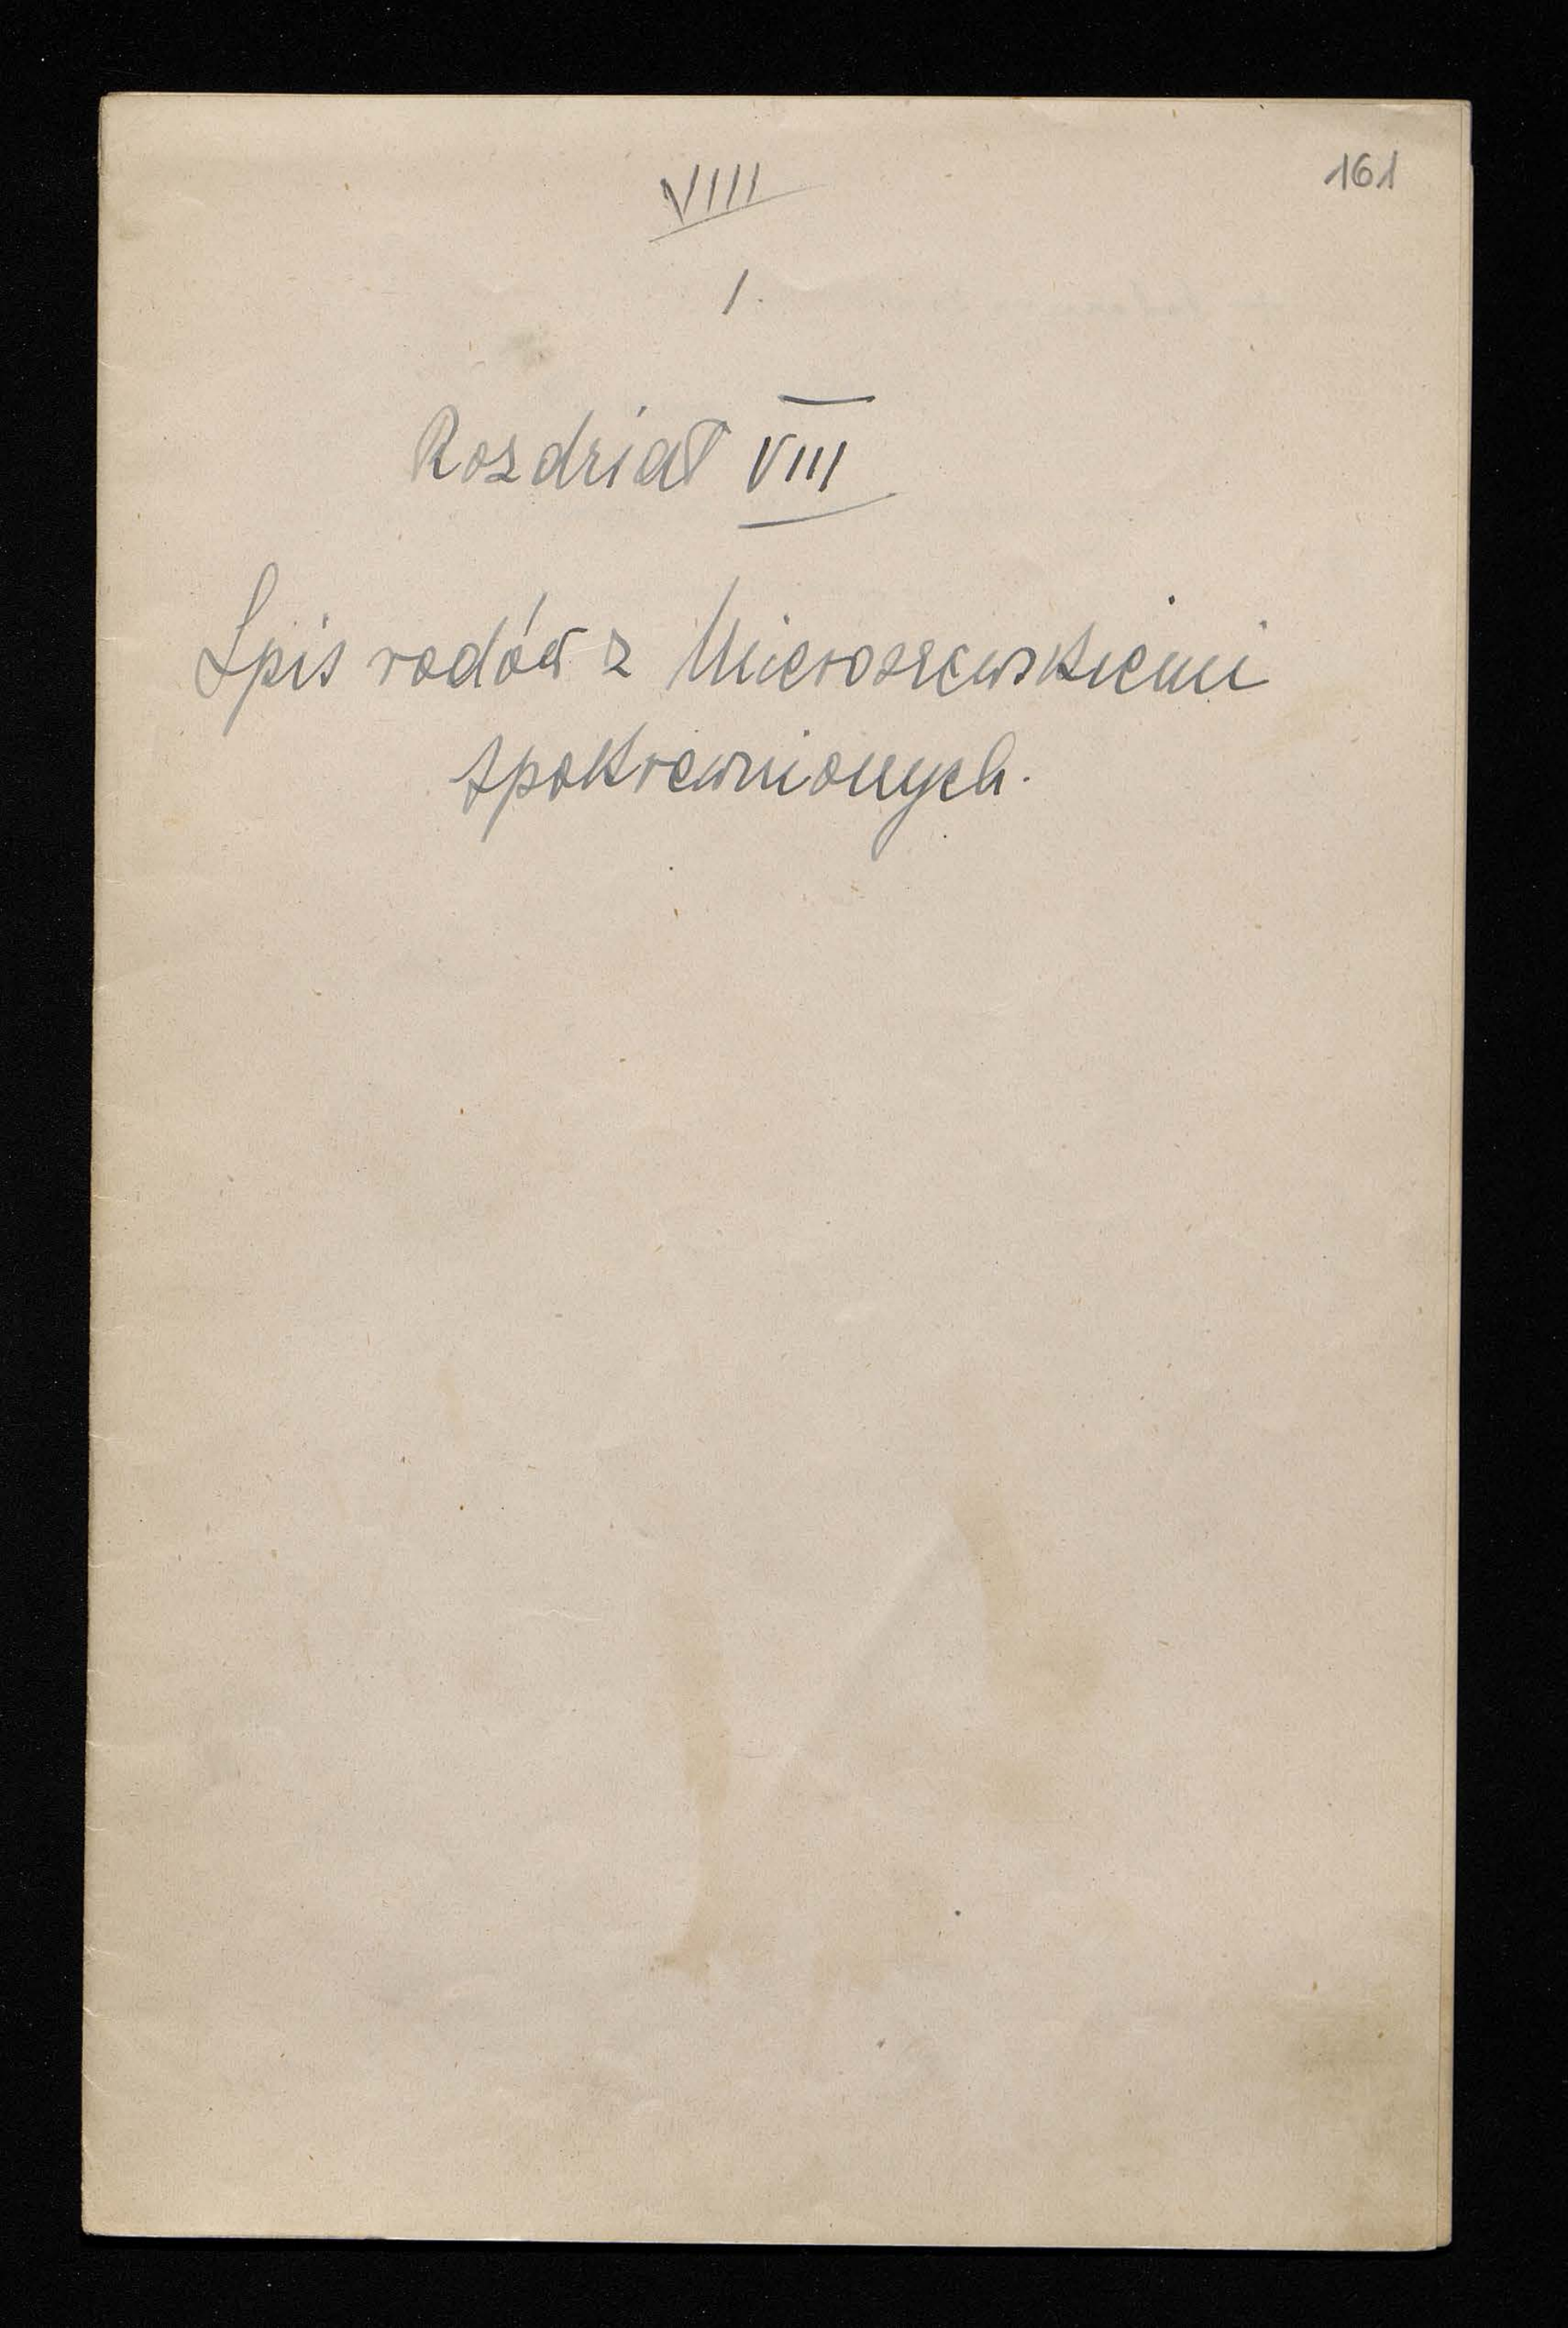 161
VIIII
1.
Rozdział VIII
Spis rodów z Mieroszewskiemi
spokrewnionych.